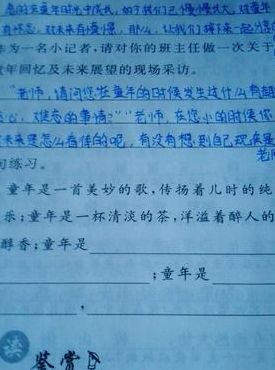 有怀恋，对未来有憧憬，那么，让我们接下来一起
作为一名小记者，请对你的班主任做一次关于
年回忆及未来展望的现场采访。
"老师，请问您在童年的时候发生过什么有趣
心，难忘的事情？""老师，在您小的时候您
未来是怎么看待的呢，有没有想到自己现在是
老师
句练习。
童年是一首美妙的歌，传扬着儿时的纯
乐；童年是一杯清淡的茶，洋溢着醉人的
醇香；童年是
；童年是
，
读
鉴赏